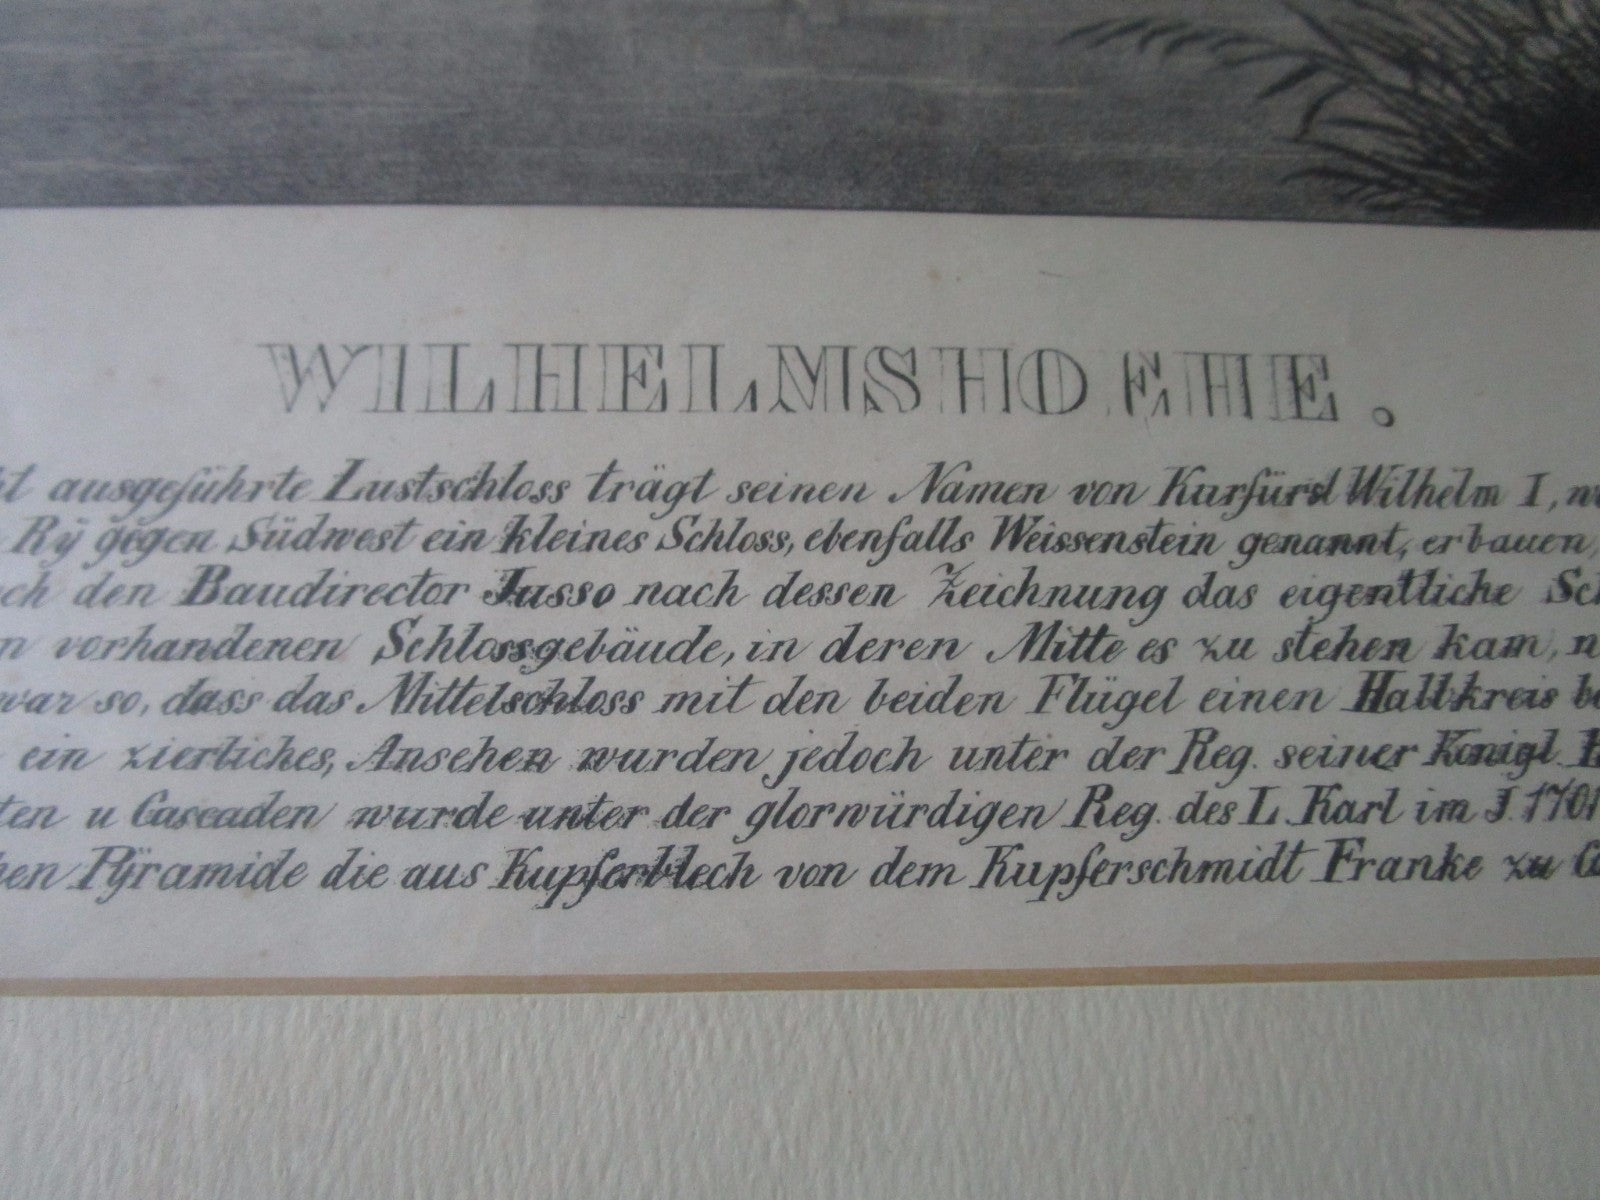 WILHELMSHOEHE.
ausgeführte Lustschloss trägt seinen Namen von Kurfürst Wilhelm I,
Rÿ gegen Südwest ein kleines Schloss, ebenfalls Weissenstein genannt, erbauen,
den Baudirector Jusso nach dessen Zeichnung das eigentliche
vorhandenen Schlossgebäude, in deren Mitte es zu stehen kam,
so, dass das Mittelschloss mit den beiden Flügel einen Halbkreis
ein zierliches, Ansehen wurden jedoch unter der Reg. seiner Königl.
u Cascaden wurde unter der glorwürdigen Reg. des L. Karl im J. 1701
Pÿramide die aus Kupferblech von dem Kupferschmidt Franke zu